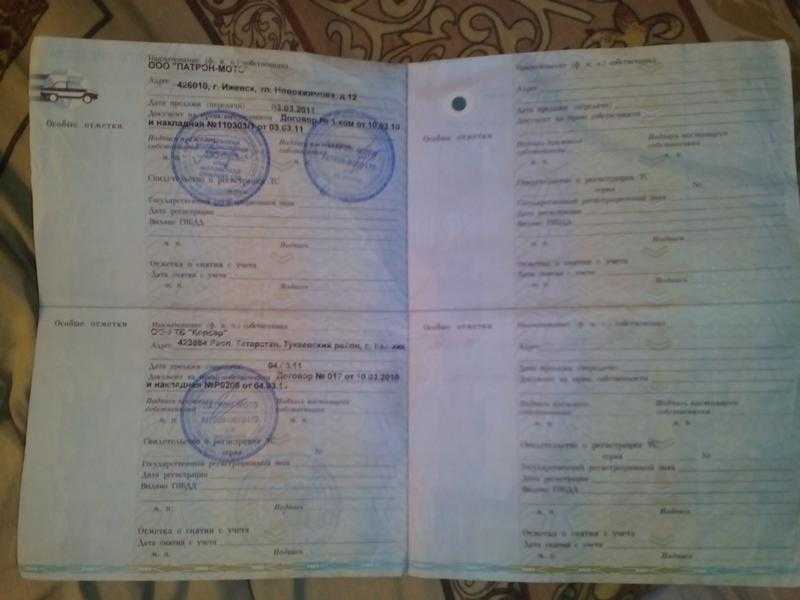 Наименование (ф. и. о.) собственника
ООО "ПАТРОН-МОТО"
Адрес 426010, г. Ижевск, ул. Новоажимова, д.12
Дата продажи (передачи) 03.03.2011
Документ на право собственности Договор № 1 ком от 10.03.10
и накладная №110303/1 от 03.03.11
Особые отметки
Подпись прежнего собственника
Подпись настоящего собственника
м. п.
м. п.
Свидетельство о регистрации ТС
серия
Государственный регистрационный знак
Дата регистрации
Выдано ГИБДД
м. п. Подпись
Отметка о снятии с учета
Дата снятия с учета
м. п. Подпись
Особые отметки
Наименование (ф. и. о.) собственника
"Корсар"
Адрес 423884 Респ. Татарстан, Тукаевский район, с.
Дата продажи (передачи)
Документ на право собственности Договор № 017 от 10.03.2010
и накладная №Р0208 от
Подпись прежнего собственника
Подпись настоящего собственника
м. п.
ПАТРОН-МОТО
Свидетельство о регистрации ТС
серия №
Государственный регистрационный знак
Дата регистрации
Выдано ГИБДД
м. п. Подпись
Отметка о снятии с учета
Дата снятия с учета
м. п. Подпись
Наименование (ф. и. о.) собственника
Адрес
Дата продажи (передачи)
Документ на право собственности
Особые отметки
Подпись прежнего собственника
Подпись настоящего собственника
м. п.
м. п.
Свидетельство о регистрации ТС
серия №
Государственный регистрационный знак
Дата регистрации
Выдано ГИБДД
м. п. Подпись
Отметка о снятии с учета
Дата снятия с учета
м. п. Подпись
Особые отметки
Наименование (ф. и. о.) собственника
Адрес
Дата продажи (передачи)
Документ на право собственности
Подпись прежнего собственника
Подпись настоящего собственника
м. п.
м. п.
Свидетельство о регистрации ТС
серия №
Государственный регистрационный знак
Дата регистрации
Выдано ГИБДД
м. п. Подпись
Отметка о снятии с учета
Дата снятия с учета
м. п. Подпись